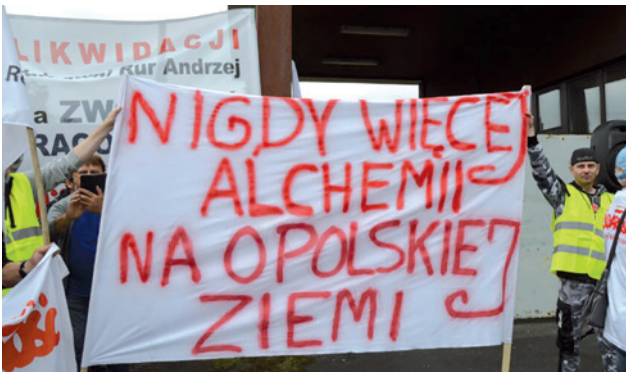 LIKWIDACJI
Kur Andrzej
a ZW
NIGDY WIĘCEJ
ALCHEMII
NA OPOLSKIEJ
ZIEMI